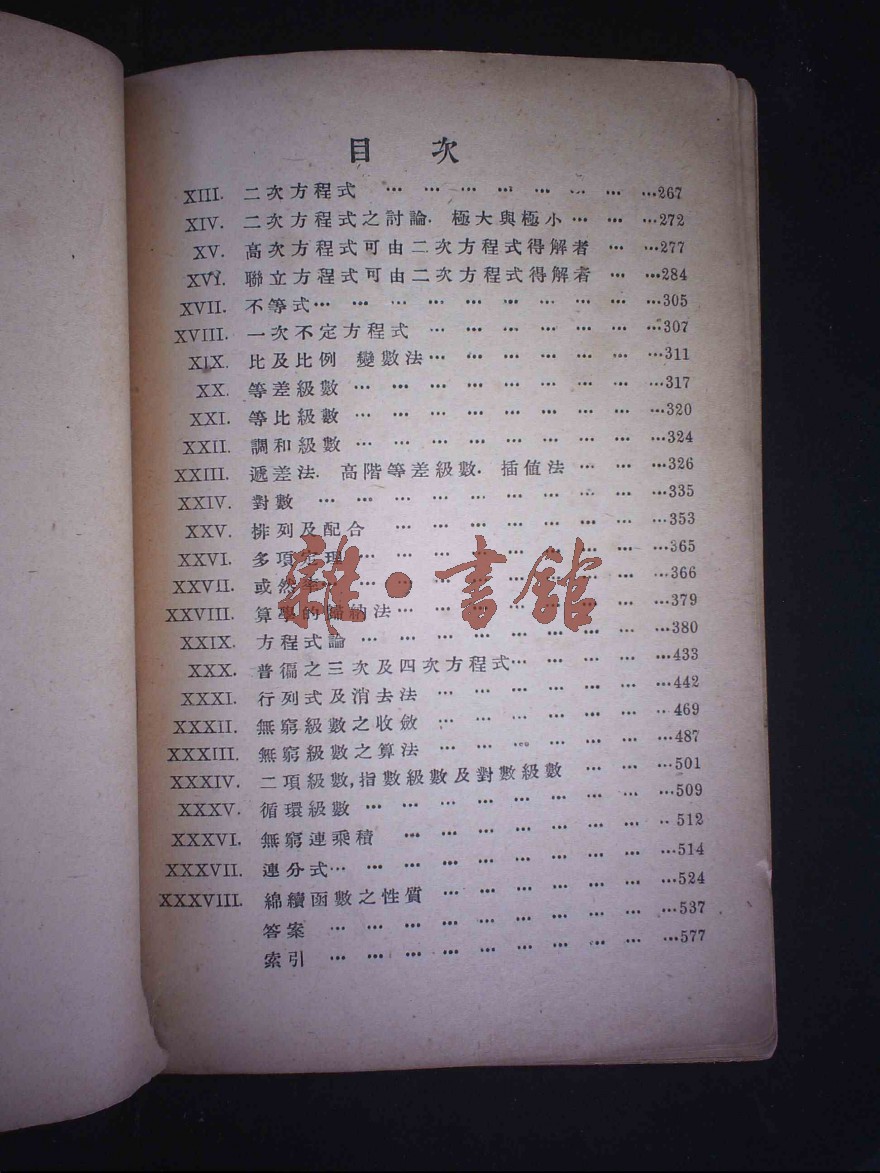 目 次
XIII. 二次方程式 … … … … … … … …267
XIV. 二次方程式之討論. 極大與極小 … … …272
XV. 高次方程式可由二次方程式得解者 … …277
XVI. 聯立方程式可由二次方程式得解者 … …284
XVII. 不等式 … … … … … … … … … …305
XVIII. 一次不定方程式 … … … … … … …307
XIX. 比及比例 變數法 … … … … … … …311
XX. 等差級數 … … … … … … … … …317
XXI. 等比級數 … … … … … … … … …320
XXII. 調和級數 … … … … … … … … …324
XXIII. 遞差法. 高階等差級數. 插值法 … … …326
XXIV. 對數 … … … … … … … … … …335
XXV. 排列及配合 … … … … … … … …353
XXVI. 多項定理 … … … … … … … … …365
XXVII. 或然率 … … … … … … … … …366
XXVIII. 算學的歸納法 … … … … … … … …379
XXIX. 方程式論 … … … … … … … … …380
XXX. 普徧之三次及四次方程式 … … … … …433
XXXI. 行列式及消去法 … … … … … … …442
XXXII. 無窮級數之收斂 … … … … … … …469
XXXIII. 無窮級數之算法 … … … … … … …487
XXXIV. 二項級數,指數級數及對數級數 … … …501
XXXV. 循環級數 … … … … … … … … …509
XXXVI. 無窮連乘積 … … … … … … … …512
XXXVII. 連分式 … … … … … … … … … …514
XXXVIII. 綿續函數之性質 … … … … … … …524
答案 … … … … … … … … … …537
索引 … … … … … … … … … …577
雜·書館